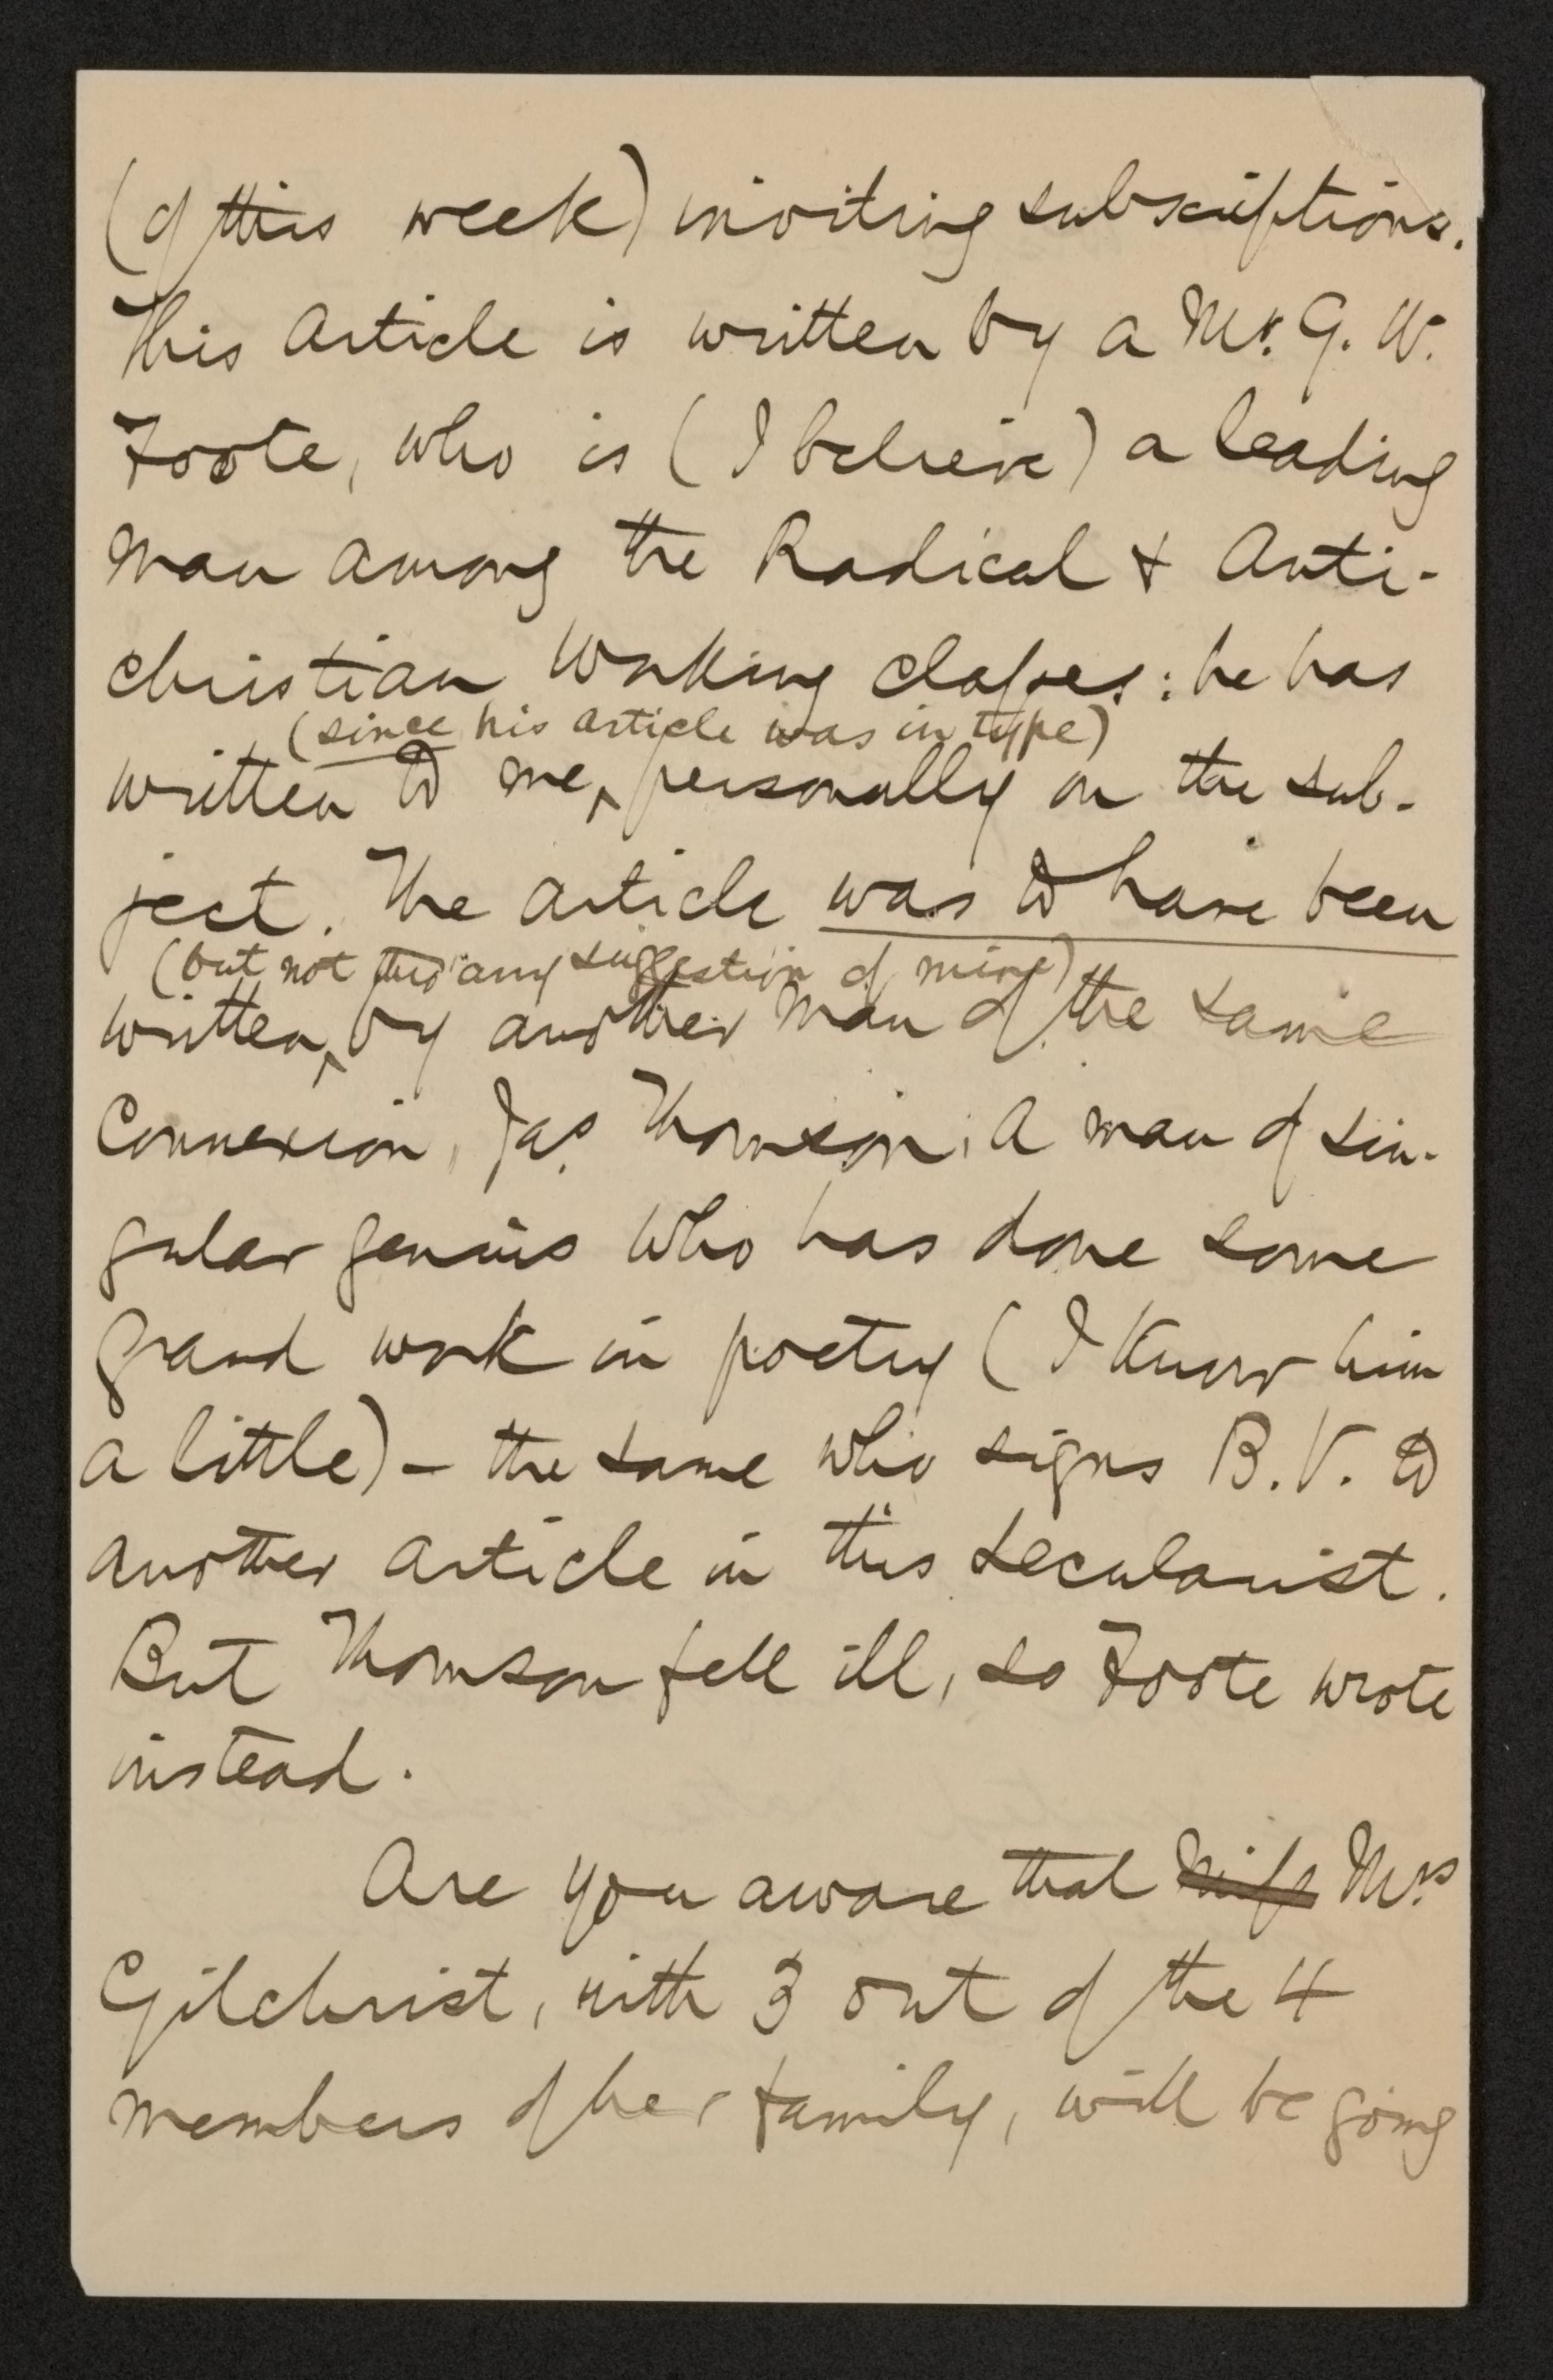 (of this week) inviting subscriptions.
This article is written by a Mr. G. W.
Foote, who is (I believe) a leading
man among the Radical & Anti-
christian working classes: he has
(since his article was in type)
written to me, personally on the sub-
ject. The article was to have been
(but not thro' any suggestion of mine)
written, by another man of the same
Connexion, Jas. Thomson, a man of sin-
gular genius who has done some
grand work in poetry (I know him
a little) – the same who signs B.V. to
another article in this Secularist.
But Thomson fell ill, so Foote wrote
instead.
Are you aware that Miss Mrs
Gilchrist, with 3 out of the 4
members of her family, will be going